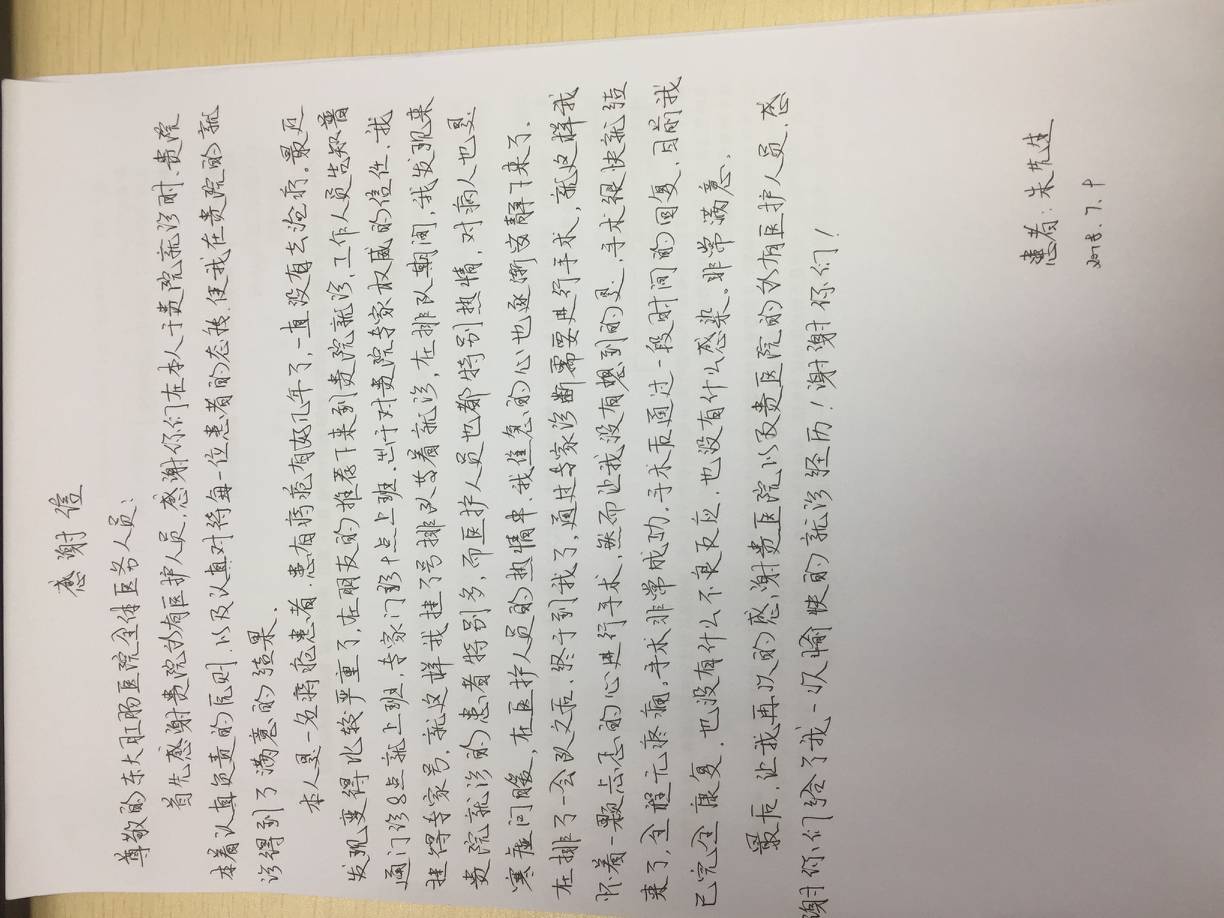 感谢信
尊敬的东大肛肠医院全体医务人员：
首先感谢贵院所有医护人员，感谢你们在本人于贵院就诊时，贵院
本着认真负责的原则，以及认真对待每一位患者的态度，使我在贵院的就
诊得到了满意的结果。
本人是一名痔疮患者，患有痔疮有好几年了，一直没有去治疗。最近
发现变得比较严重了，在朋友的推荐下来到贵院就诊，工作人员告知普
通门诊8点就上班，专家门诊十点上班，出于对贵院专家权威的信任，我
挂得专家号，就这样我挂了号排队等着就诊，在排队期间，我发现来
贵院就诊的患者特别多，而医护人员也都特别热情，对病人也是
寒虚问暖，在医护人员的热情中，我焦急的心也逐渐安静下来了。
在排了一会队之后，终于到我了，通过专家诊断需要进行手术，就这样我
怀着一颗忐忑的心进行手术，然而让我没有想到的是，手术很快就结
束了，全程无疼痛，手术非常成功，手术后通过一段时间的回复，目前我
已完全康复，也没有什么不良反应，也没有什么感染。非常满意。
最后，让我再次的感谢贵医院以及贵医院的所有医护人员，感
谢你们给了我一次愉快的就诊经历！谢谢你们！
患者：朱先生
2018.7.9